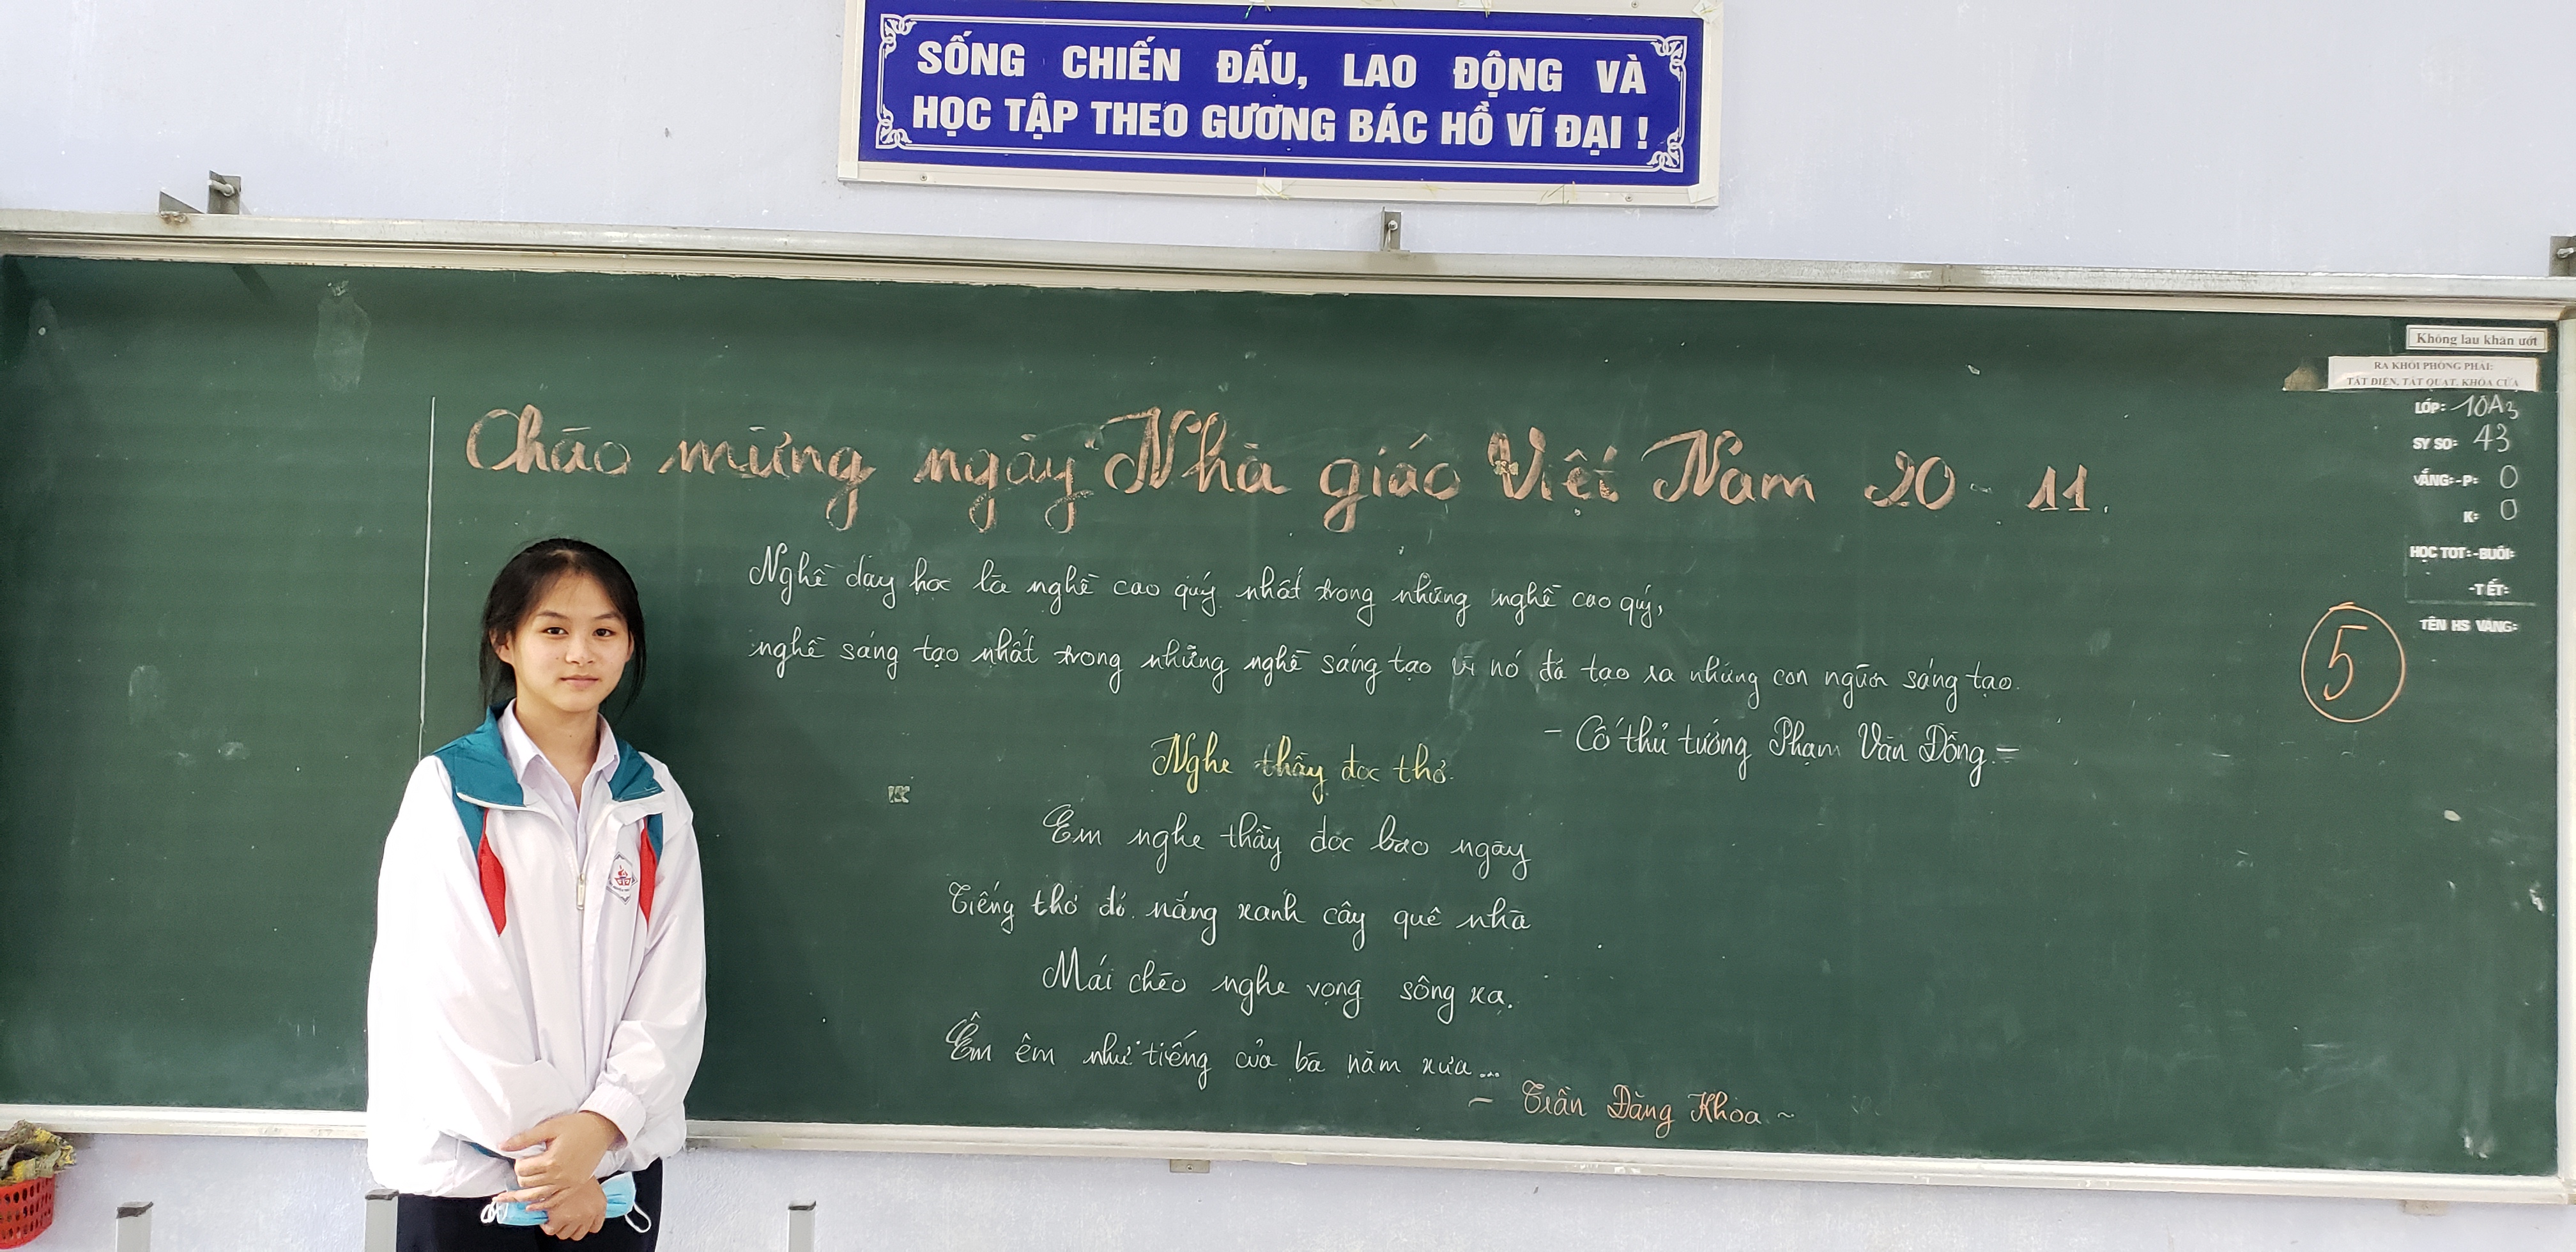 SỐNG CHIẾN ĐẤU, LAO ĐỘNG VÀ
HỌC TẬP THEO GƯƠNG BÁC HỒ VĨ ĐẠI !
Không lau khăn ướt
RA KHỎI PHÒNG PHẢI:
TẮT ĐIỆN, TẮT QUẠT, KHÓA CỬA
LỚP: 10A3
SỸ SỐ: 43
VẮNG:-P: 0
K: 0
HỌC TỐT:-BUỔI:
-TIẾT:
TÊN HS VẮNG:
5
Chào mừng ngày Nhà giáo Việt Nam 20 - 11.
Nghề dạy học là nghề cao quý nhất trong những nghề cao quý,
nghề sáng tạo nhất trong những nghề sáng tạo vì nó đã tạo ra những con người sáng tạo.
- Cố thủ tướng Phạm Văn Đồng -
Nghe thầy đọc thơ
Em nghe thầy đọc bao ngày
Tiếng thơ đỏ nắng xanh cây quê nhà
Mái chèo nghe vọng sông xa.
Êm êm như tiếng của bà năm xưa...
~ Trần Đăng Khoa ~